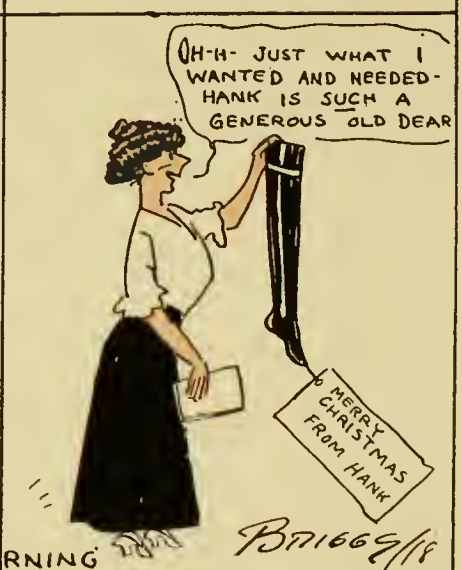 OH-H- JUST WHAT I
WANTED AND NEEDED-
HANK IS SUCH A
GENEROUS OLD DEAR
MERRY
CHRISTMAS
FROM HANK
RNING
BRIGGS/18